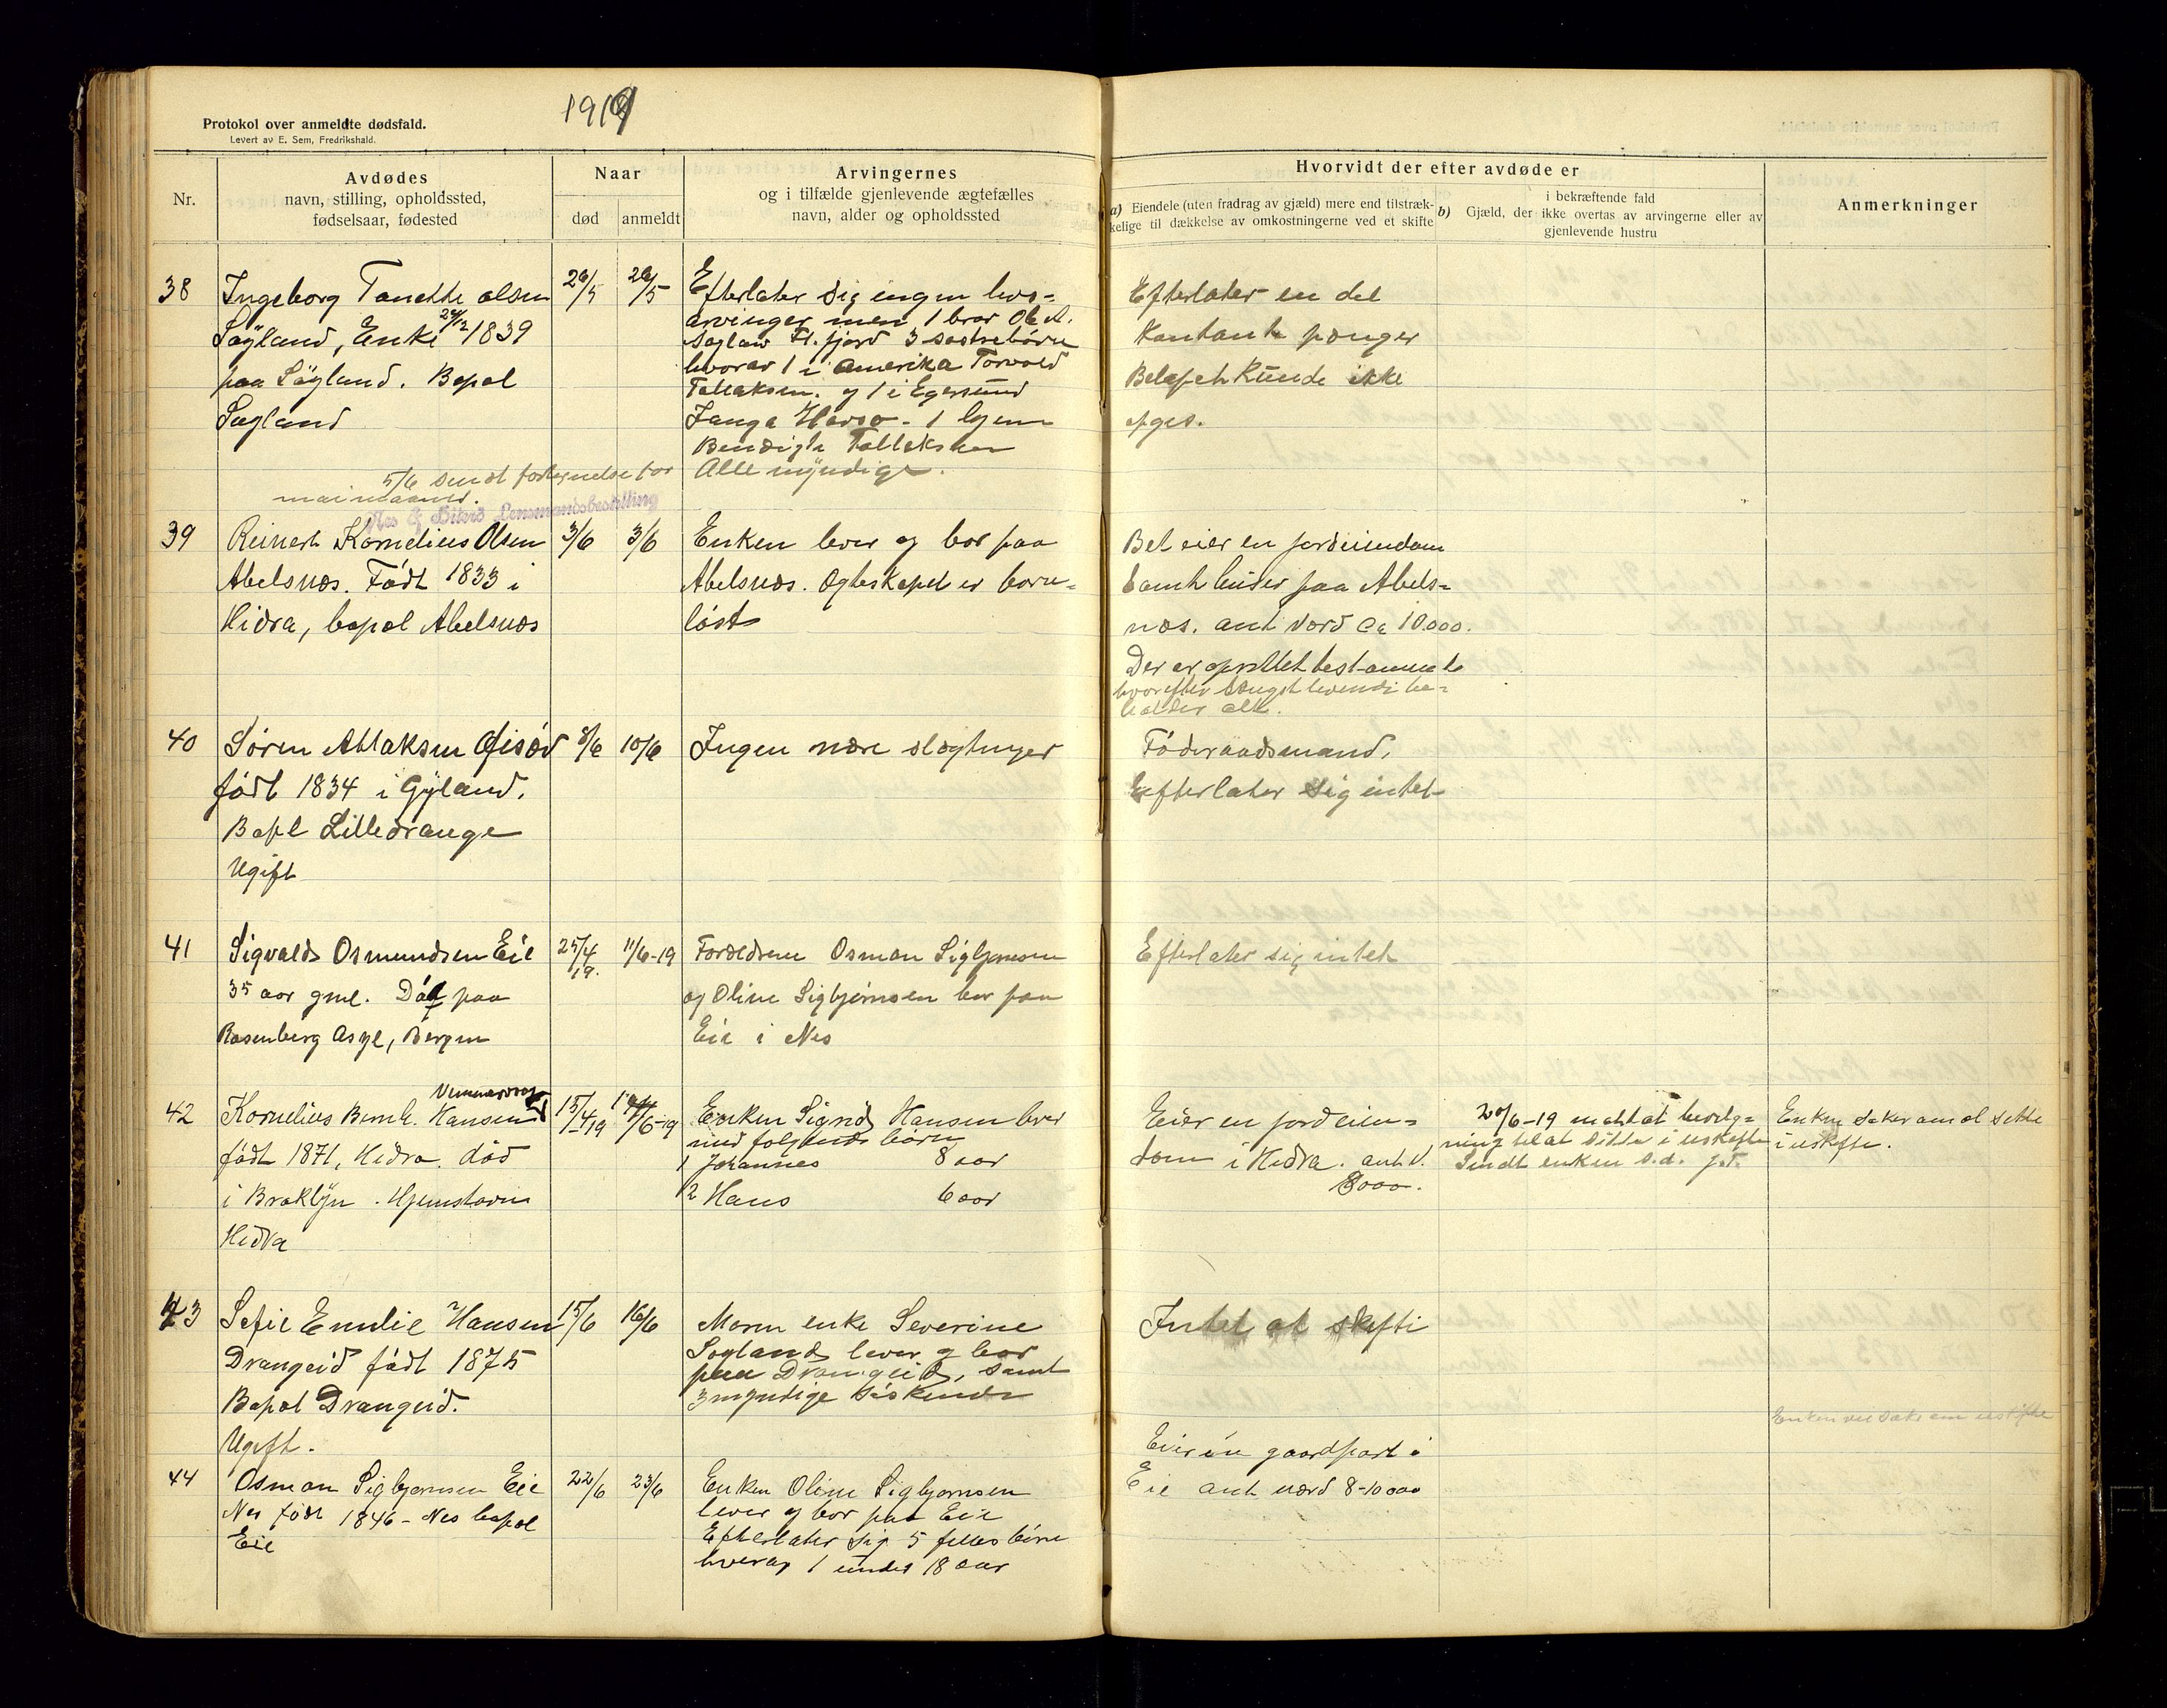 1919
Protokol over anmeldte dødsfald.
Levert av E. Sem, Fredrikshald.
Nr.
Avdødes
navn, stilling, opholdssted,
fødselsaar, fødested
Naar
død
anmeldt
Arvingernes
og i tilfælde gjenlevende ægtefælles
navn, alder og opholdssted
Hvorvidt der efter avdøde er
a) Eiendele (uten fradrag av gjæld) mere end tilstræk-
kelige til dækkelse av omkostningerne ved et skifte
b) Gjæld, der
i bekræftende fald
ikke overtas av arvingerne eller av
gjenlevende hustru
Anmerkninger
38
Ingeborg Tonette Olsen
Søyland, Enke 24/12 1839
paa Søyland. Bopæl
Søgland
26/5
26/5
Efterlater sig ingen livs-
arvinger men 1 bror Ole A.
3 søstrebørn
hvorav 1 i Amerika Torvald
Tollaksen. og 1 i Egersund
1 hjem
Tollaksen
Alle myndige.
Efterlater en del
Kontante penger
Beløpet kunde ikke
opges.
5/6 sendt fortegnelse for
mai maaned.
Nes & Hitterø Lensmandsbestilling
39
Reinert Kornelius Olsen
Abelsnæs. Født 1833 i
Hidra, bopæl Abelsnæs
3/6
3/6
Enken lever og bor paa
Abelsnæs. Egteskapet er barn-
løst
Boet eier en jordeiendom
samt huser paa Abels-
næs. ant værd ca 10.000.
Der er oprettet testamente
hvorefter længst levende be-
holder alt.
40
Søren Atlaksen
født 1834 i Gyland.
Bopl Lilledrange
Ugift
8/6
10/6
Ingen nære slegtninger
Føderaadsmand.
Efterlater sig intet
41
Sigvald Osmundsen Eie
35 aar gml. Død paa
Rosenberg Asyl, Bergen
25/4
19.
11/6-19
Forældrene Osmon Sigbjørnsen
og Oline Sigbjørnsen bor paa
Eie i Nes
Efterlater sig intet
42
Kornelius Bernh. Hansen
født 1871, Hidra. død
i Broklyn. Hjemstavn
Hidra
15/4 19
/6-19
Enken Sigrid Hansen lever
med følgende børn
1 Johannes 8 aar
2 Hans 6 aar
Eier en jordeien-
dom i Hidra. ant v.
8000.
20/6-19 mottat bevilg-
ning til at sitte i uskiftet
Sendt enken s.d.
Enken søker om at sitte
i uskifte.
43
Sofie Emilie Hansen
Drangeid født 1875
Bopæl Drangeid.
Ugift.
15/6
16/6
Moren enke Severine
Søgland lever og bor
paa Drangeid, samt
3 myndige søskende
Intet at skifte
44
Osmon Sigbjørnsen Eie
Nes født 1846 - Nes bopæl
Eie
22/6
23/6
Enken Oline Sigbjørnsen
lever og bor paa Eie
Efterlater sig 5 felles børn
hvorav 1 under 18 aar
Eier en gaardpart i
Eie ant værd 8-10000
Enken vil søke om uskifte